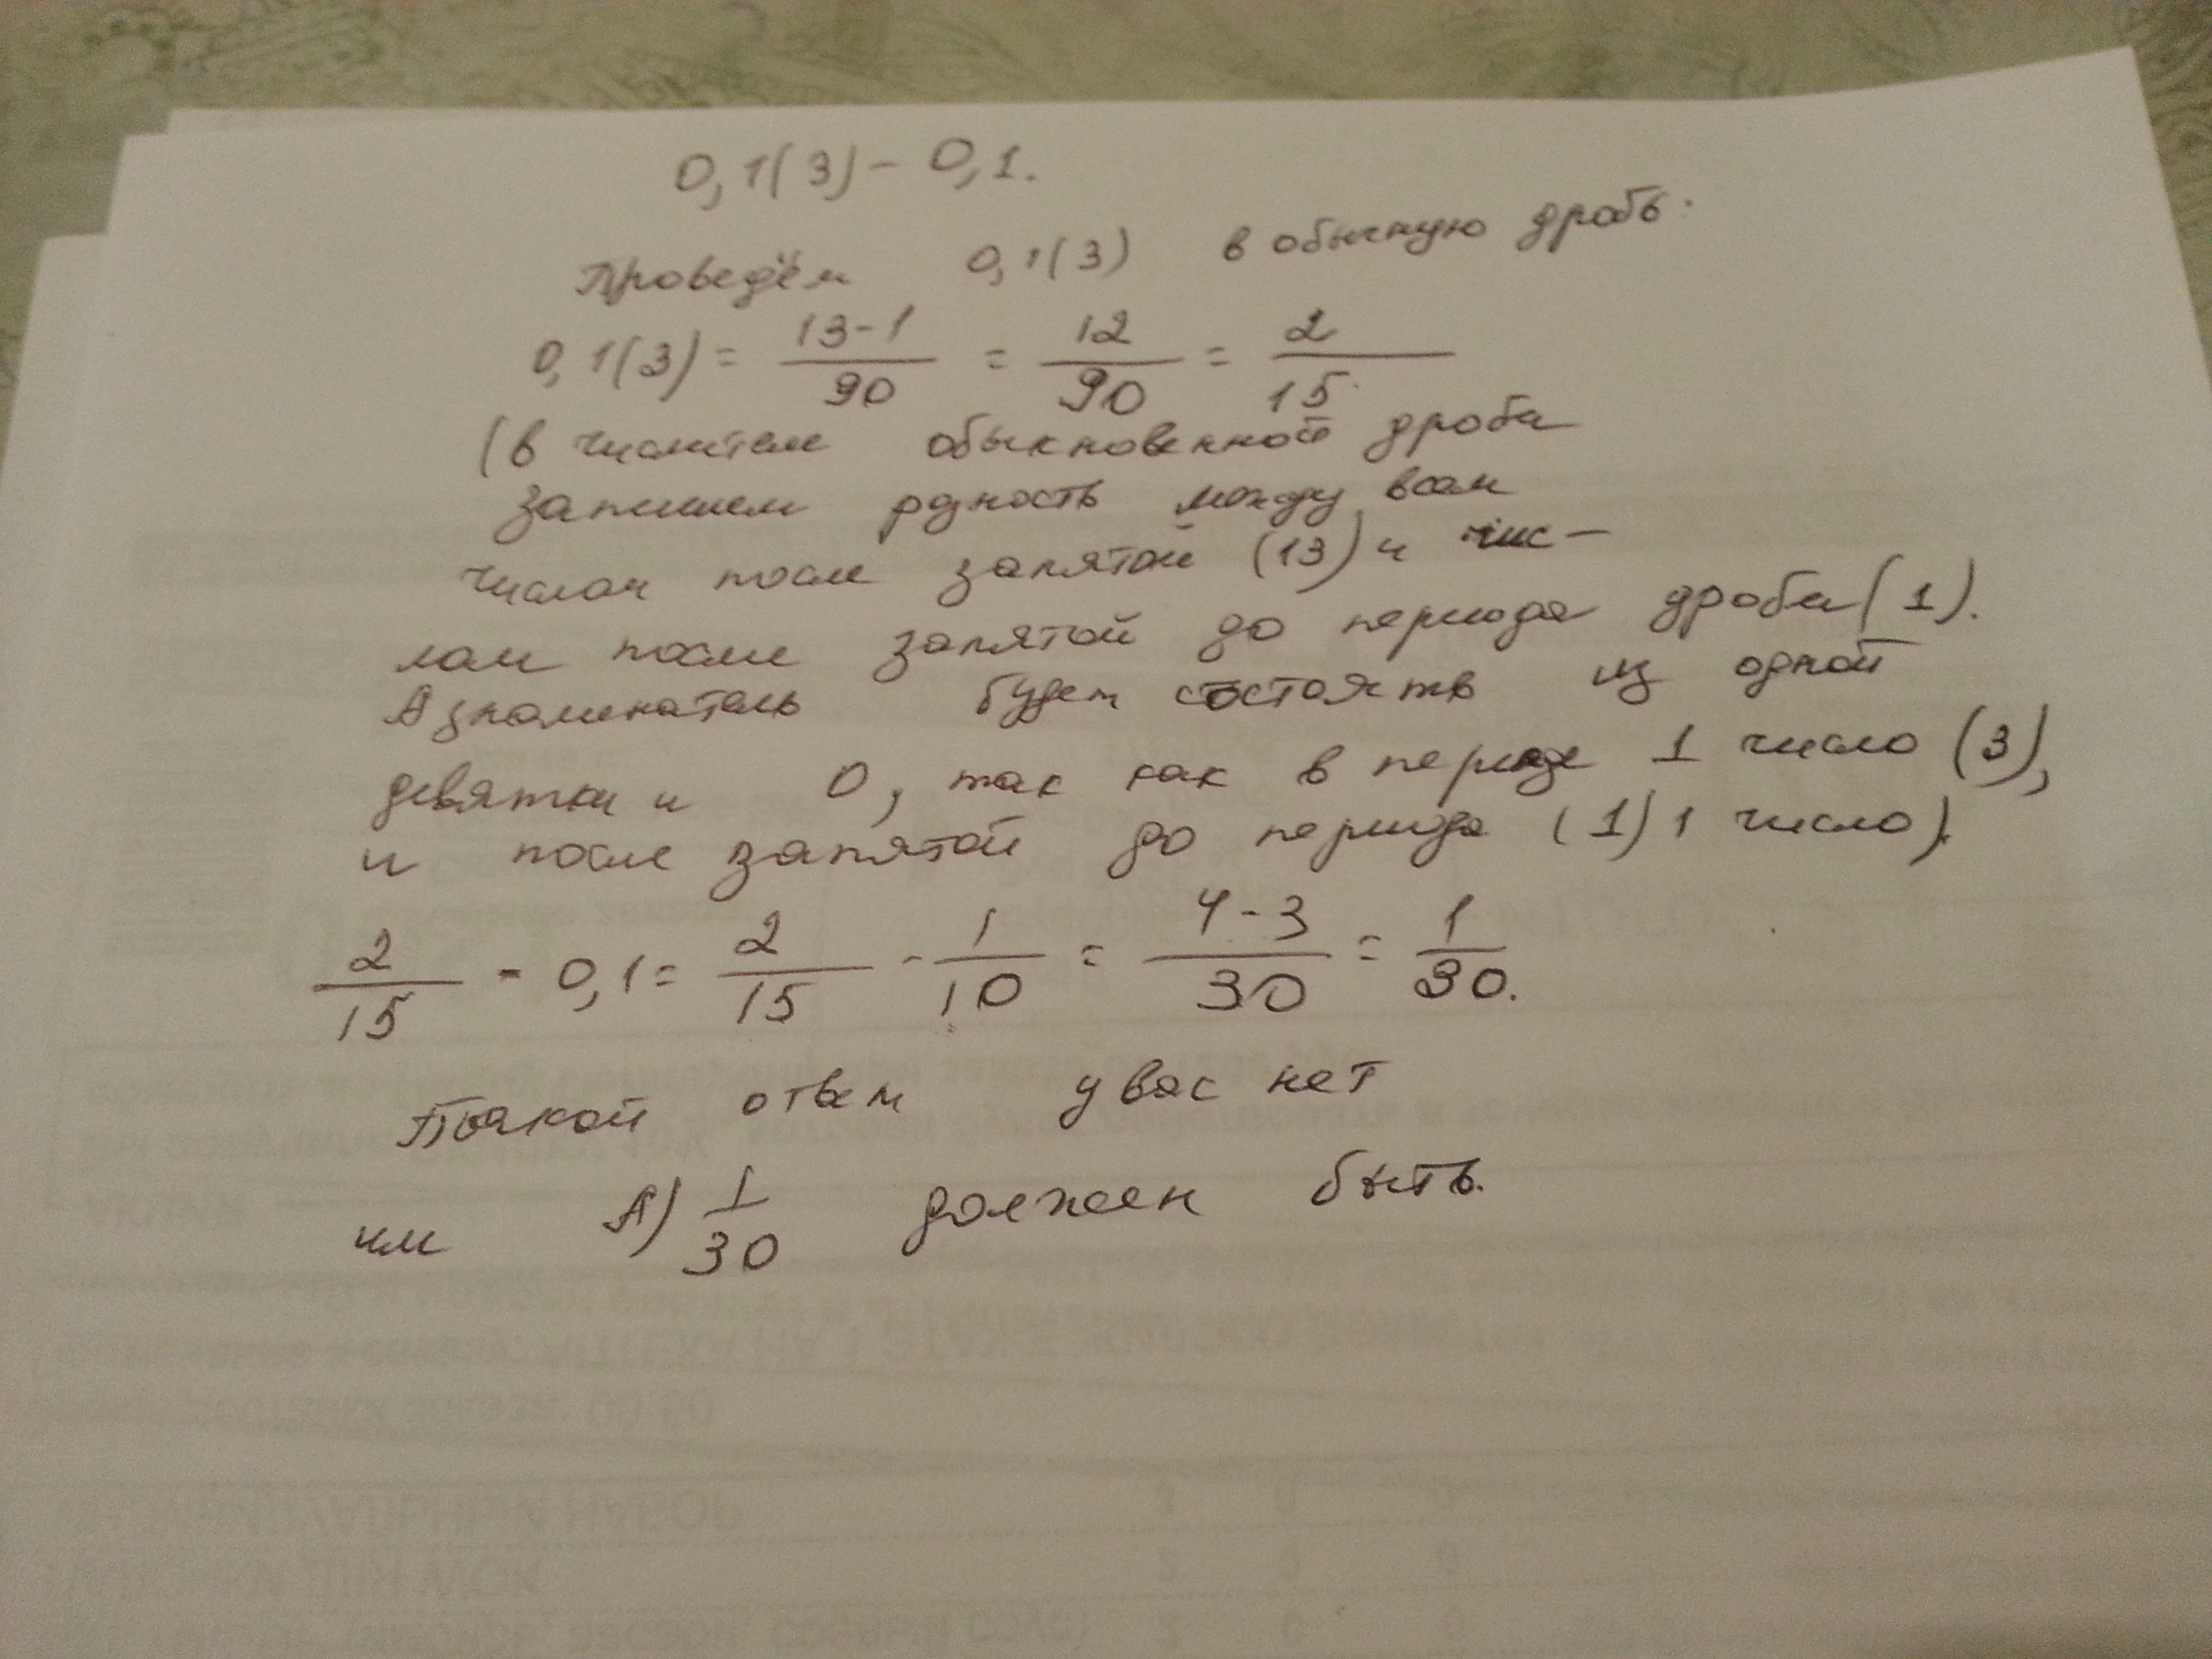 0,1(3) - 0,1.
Проведём 0,1(3) в обычную дробь.
0,1(3) = 13-1/90 = 12/90 = 2/15
(в числителе обыкновенной дроби
запишем рзность между всем
числом после запятой (13) и чис-
лом после запятой до периода дроби (1).
А знаменатель будет состоять из одной
девятки и 0, так как в периоде 1 число (3),
и после запятой до периода (1) 1 число).
2/15 - 0,1 = 2/15 - 1/10 = 4-3/30 = 1/30.
ответ у вас нет
или А) 1/30 должен быть.